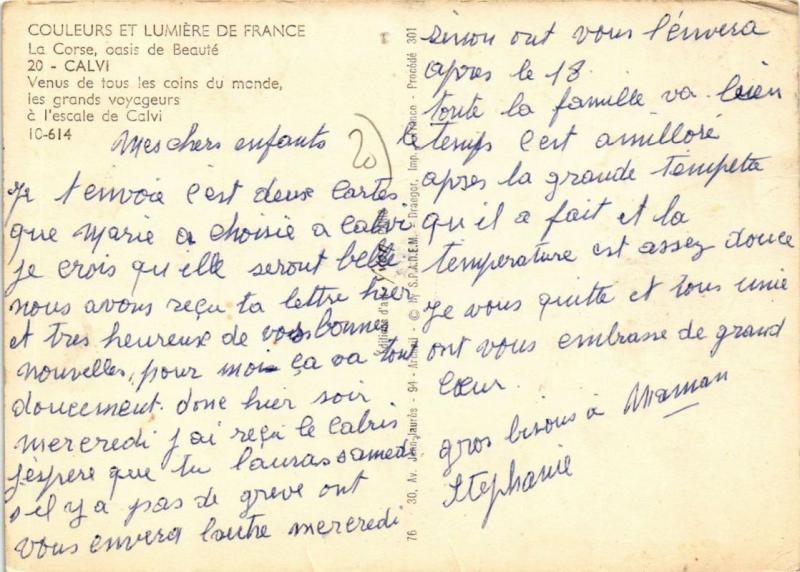 COULEURS ET LUMIÈRE DE FRANCE
La Corse, oasis de Beauté
20 - CALVI
Venus de tous les coins du monde,
les grands voyageurs
à l'escale de Calvi
10-614
20
Mes chers enfants
Je t'envoie c'est deux cartes
que Marie a choisie a Calvi
je crois qu'elle seront belle
nous avons reçu ta lettre hier
et tres heureux de vos bonnes
nouvelles, pour moi ça va tout
doucement. donc hier soir
mercredi j'ai reçu le cabris
j'espere que tu l'auras samedi
s'il y a pas de greve ont
vous envera l'autre mercredi
sinon ont vous l'envera
apres le 18.
toute la famille va bien
le temps c'est amilloré
apres la grande tempeta
qu'il a fait et la
temperature est assez douce
Je vous quitte et tous unie
ont vous embrasse de grand
cœur.
gros bisous à Maman
Stephanie
76 30, Av. Jean-Jaurès - 94 - Arcueil - © by S.P.A.D.E.M. - Draeger, Imp. France - Procédé 301
Editions d'art